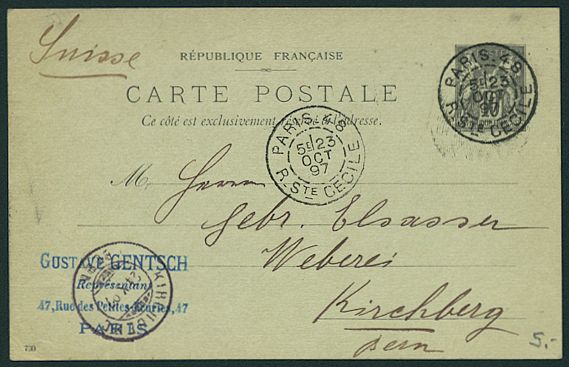 Suisse
RÉPUBLIQUE FRANÇAISE
CARTE POSTALE
Ce côté est exclusivement réservé à l'adresse.
PARIS. 48
5E 23
OCT
97
R. STE CECILE
PARIS. 48
5E 23
OCT
97
R. STE CECILE
M. Herren
Gebr. Elsasser
Weberei
Kirchberg
Bern
GUSTAVE GENTSCH
Représentant
47, Rue des Petites-Écuries, 47
PARIS
730
5.-